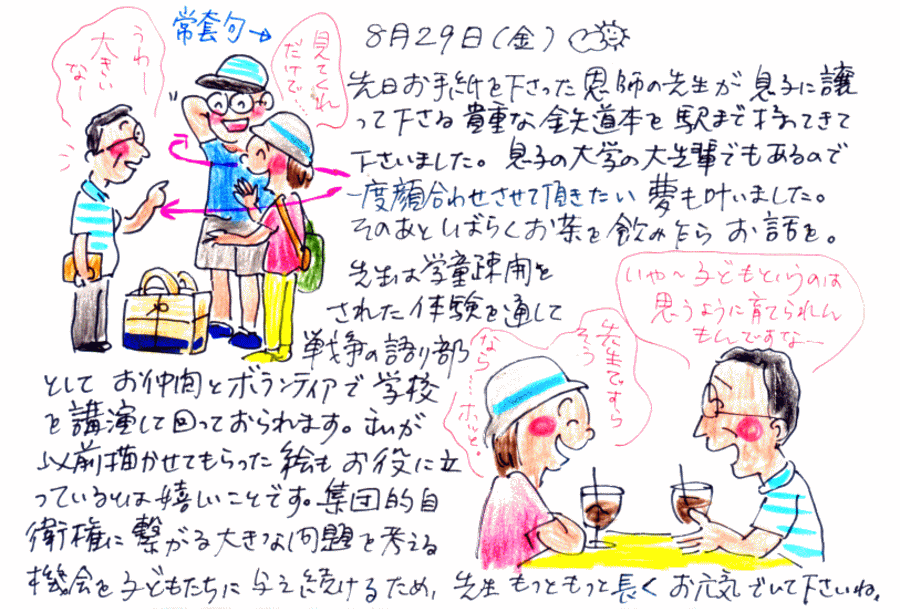 常套句→
うわー
大きい
なー
見てくれ
だけで…
8月29日(金)
先日お手紙を下さった恩師の先生が息子に譲
って下さる貴重な鉄道本を駅まで持ってきて
下さいました。息子の大学の大先輩でもあるので
一度顔合わせさせて頂きたい夢も叶いました。
そのあとしばらくお茶を飲みながらお話を。
先生は学童疎開を
された体験を通して
戦争の語り部
としてお仲間とボランティアで学校
を講演して回っておられます。私が
以前描かせてもらった絵もお役に立
っているとは嬉しいことです。集団的自
衛権に繋がる大きな問題を考える
機会を子どもたちに与え続けるため、先生もっともっと長くお元気でいて下さいね。
いや〜子どもというのは
思うように育てられん
もんですなー
先生ですら
そう
なら……ホッと。